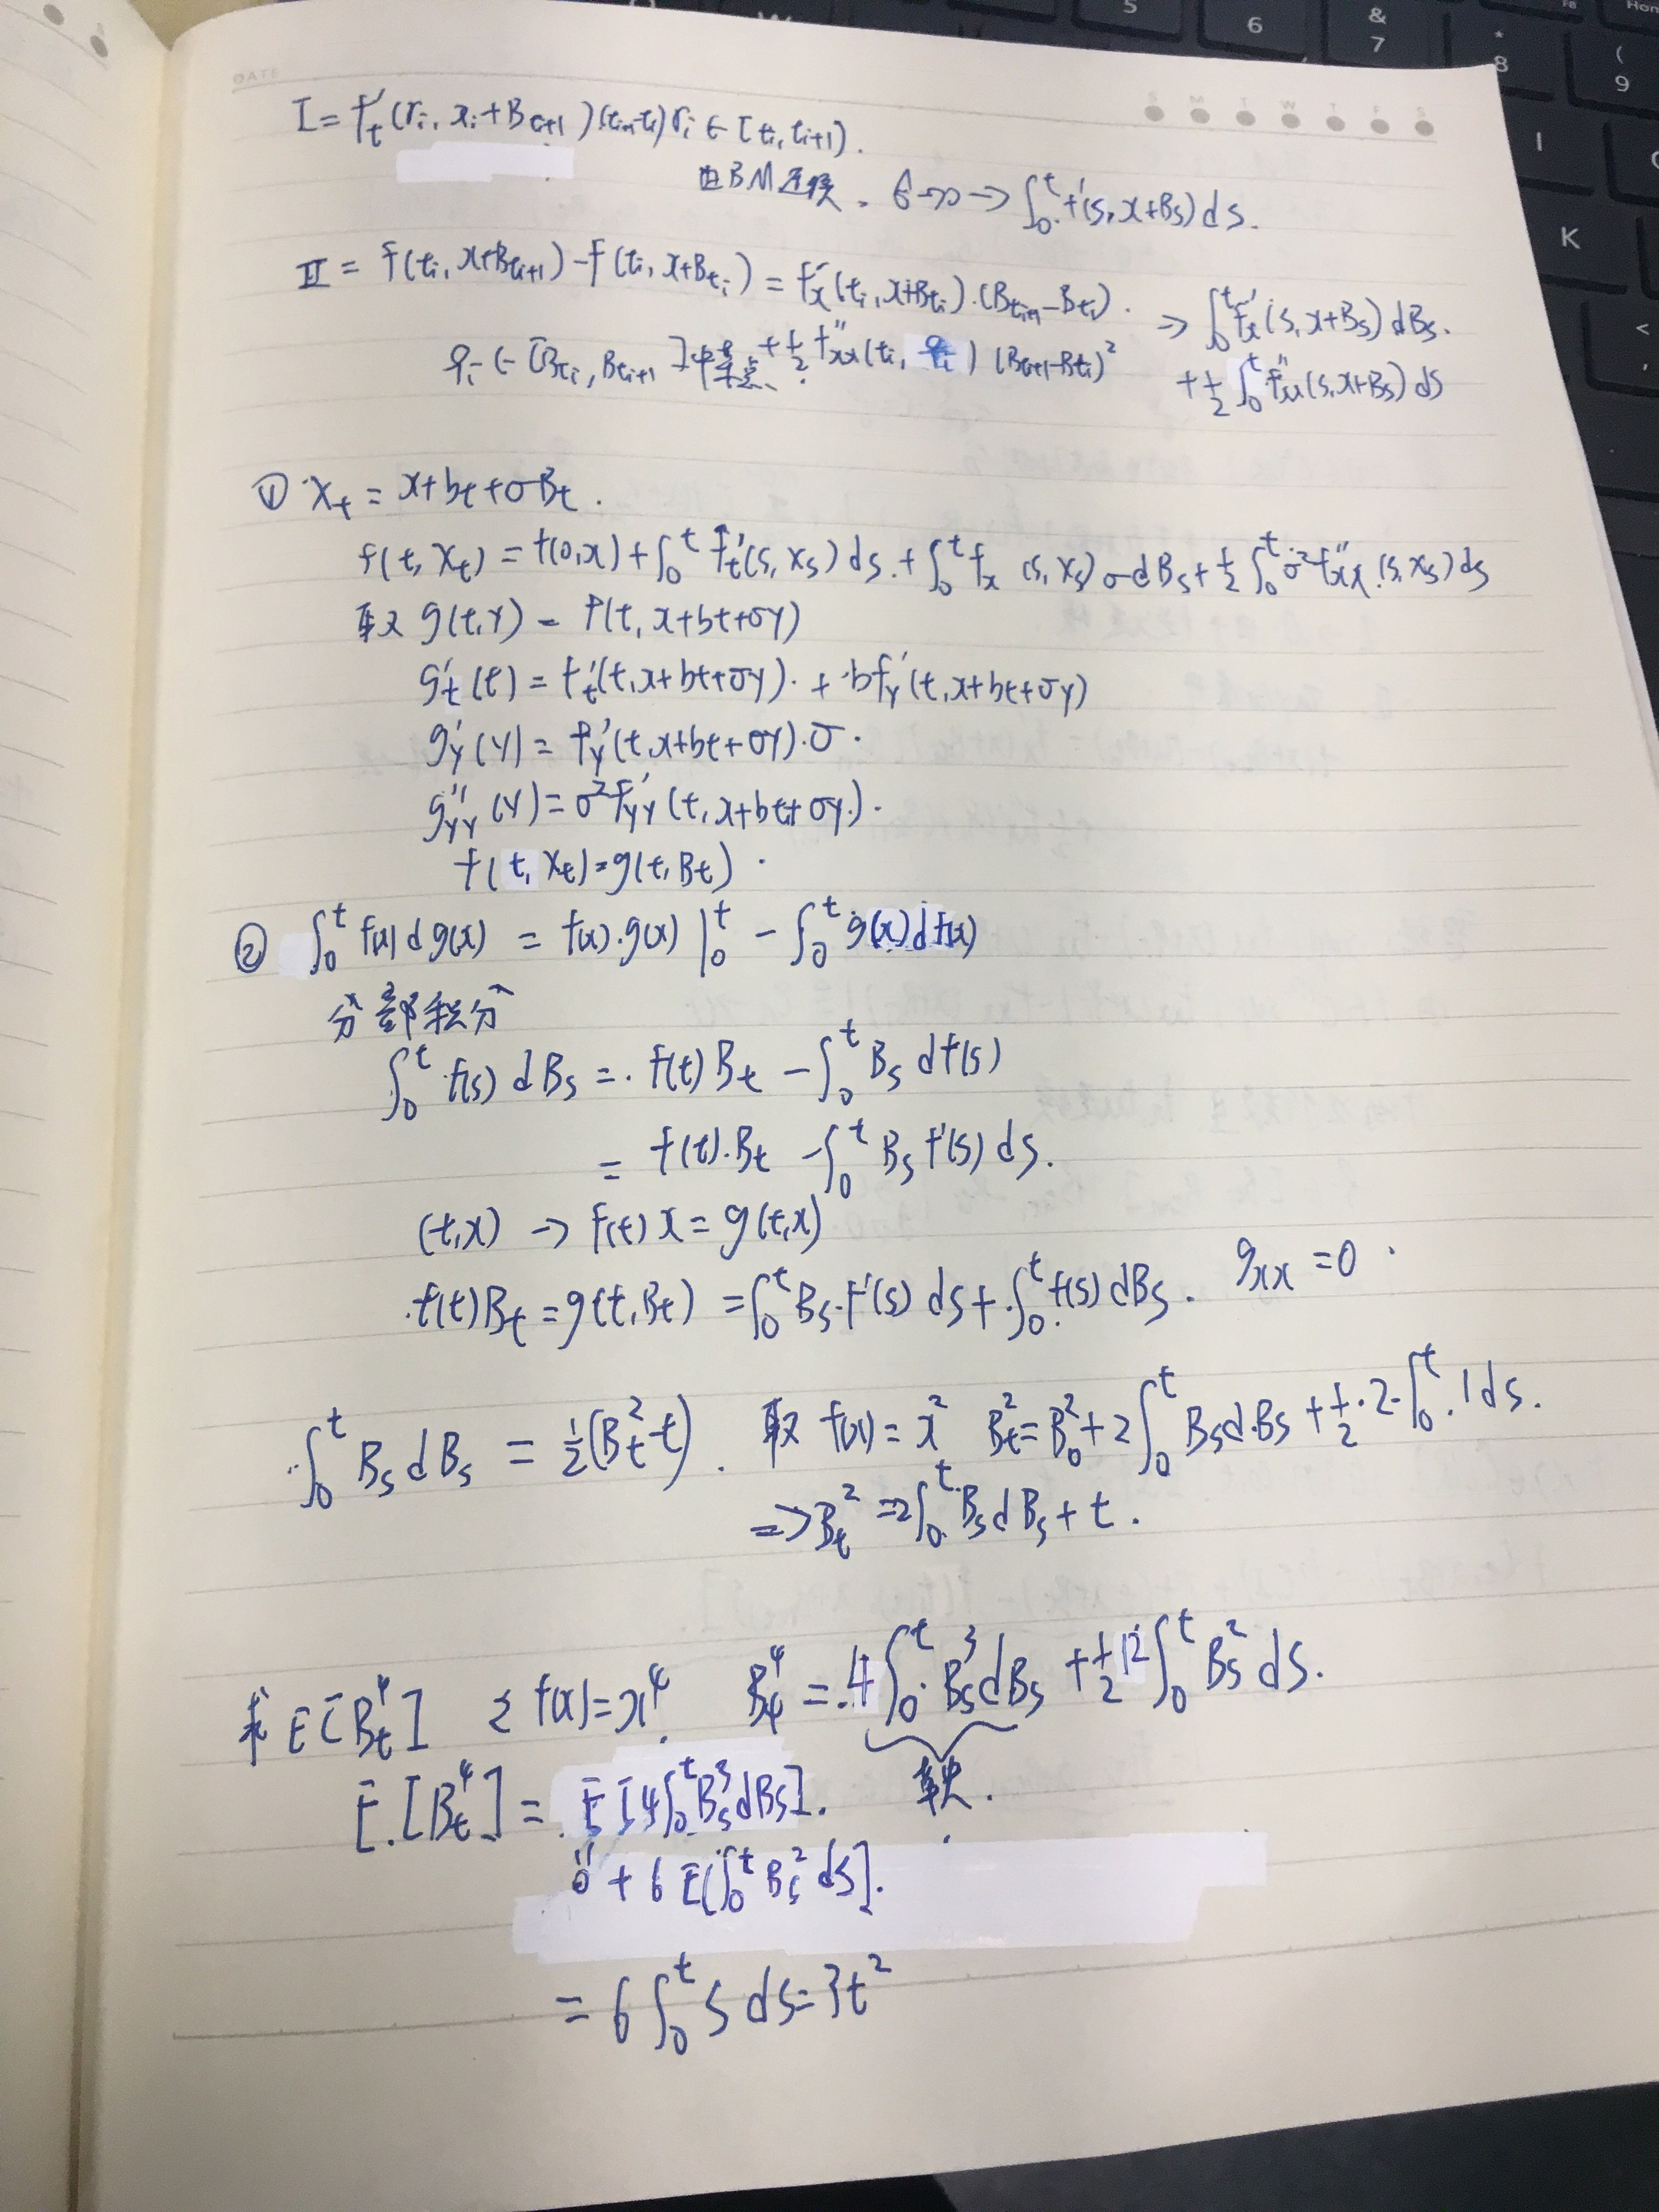 DATE
S M T W T F S
I = f't (ri, xi+Bti+1)(ti+1-ti) ri ∈ [ti, ti+1).
由BM连续. → ∫₀ᵗ f'(s, x+Bs) ds.
II = f(ti, x+Bti+1) - f(ti, x+Bti) = f'x(ti, x+Bti)·(Bti+1-Bti). ⇒ ∫₀ᵗ f'x(s, x+Bs) dBs.
φi ∈ [Bti, Bti+1]中某点、 + 1/2 f''xx(ti, φi) (Bti+1-Bti)² + 1/2 ∫₀ᵗ f''xx(s, x+Bs) ds
① Xt = x+bt+σBt.
f(t, Xt) = f(0,x) + ∫₀ᵗ f't(s, Xs) ds. + ∫₀ᵗ fx (s, Xs) σ dBs + 1/2 ∫₀ᵗ σ² f''xx.(s, Xs) ds
取 g(t,y) = f(t, x+bt+σy)
g't(t) = f't(t, x+bt+σy). + bf'y(t, x+bt+σy)
g'y(y) = f'y(t, x+bt+σy)·σ.
g''yy(y) = σ²f''yy(t, x+bt+σy).
f(t, Xt) = g(t, Bt).
② ∫₀ᵗ f(x) dg(x) = f(x)·g(x) |₀ᵗ - ∫₀ᵗ g(x)df(x)
分部积分
∫₀ᵗ f(s) dBs = f(t) Bt - ∫₀ᵗ Bs df(s)
= f(t)·Bt - ∫₀ᵗ Bs f'(s) ds.
(t,x) → f(t) x = g(t,x)
f(t)Bt = g(t, Bt) = ∫₀ᵗ Bs·f'(s) ds + ∫₀ᵗ f(s) dBs. gxx = 0.
∫₀ᵗ Bs dBs = 1/2(Bt²-t). 取 f(x) = x² Bt² = B0² + 2∫₀ᵗ Bs dBs + 1/2·2·∫₀ᵗ 1ds.
⇒ Bt² = 2∫₀ᵗ Bs dBs + t.
求 E[Bt⁴] 令 f(x) = x⁴. Bt⁴ = 4∫₀ᵗ Bs³ dBs + 1/2 12 ∫₀ᵗ Bs² ds.
E[Bt⁴] = E[4∫₀ᵗ Bs³ dBs]. 鞅.
0 + 6 E[∫₀ᵗ Bs² ds].
= 6 ∫₀ᵗ s ds = 3t²
5
6
& 7
* 8
( 9
F8
Hom
I
K
<
,